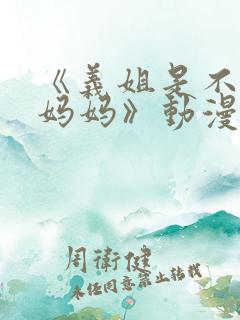 《義姐是不
妈妈》動漫
周衛健
未经同意禁止转载